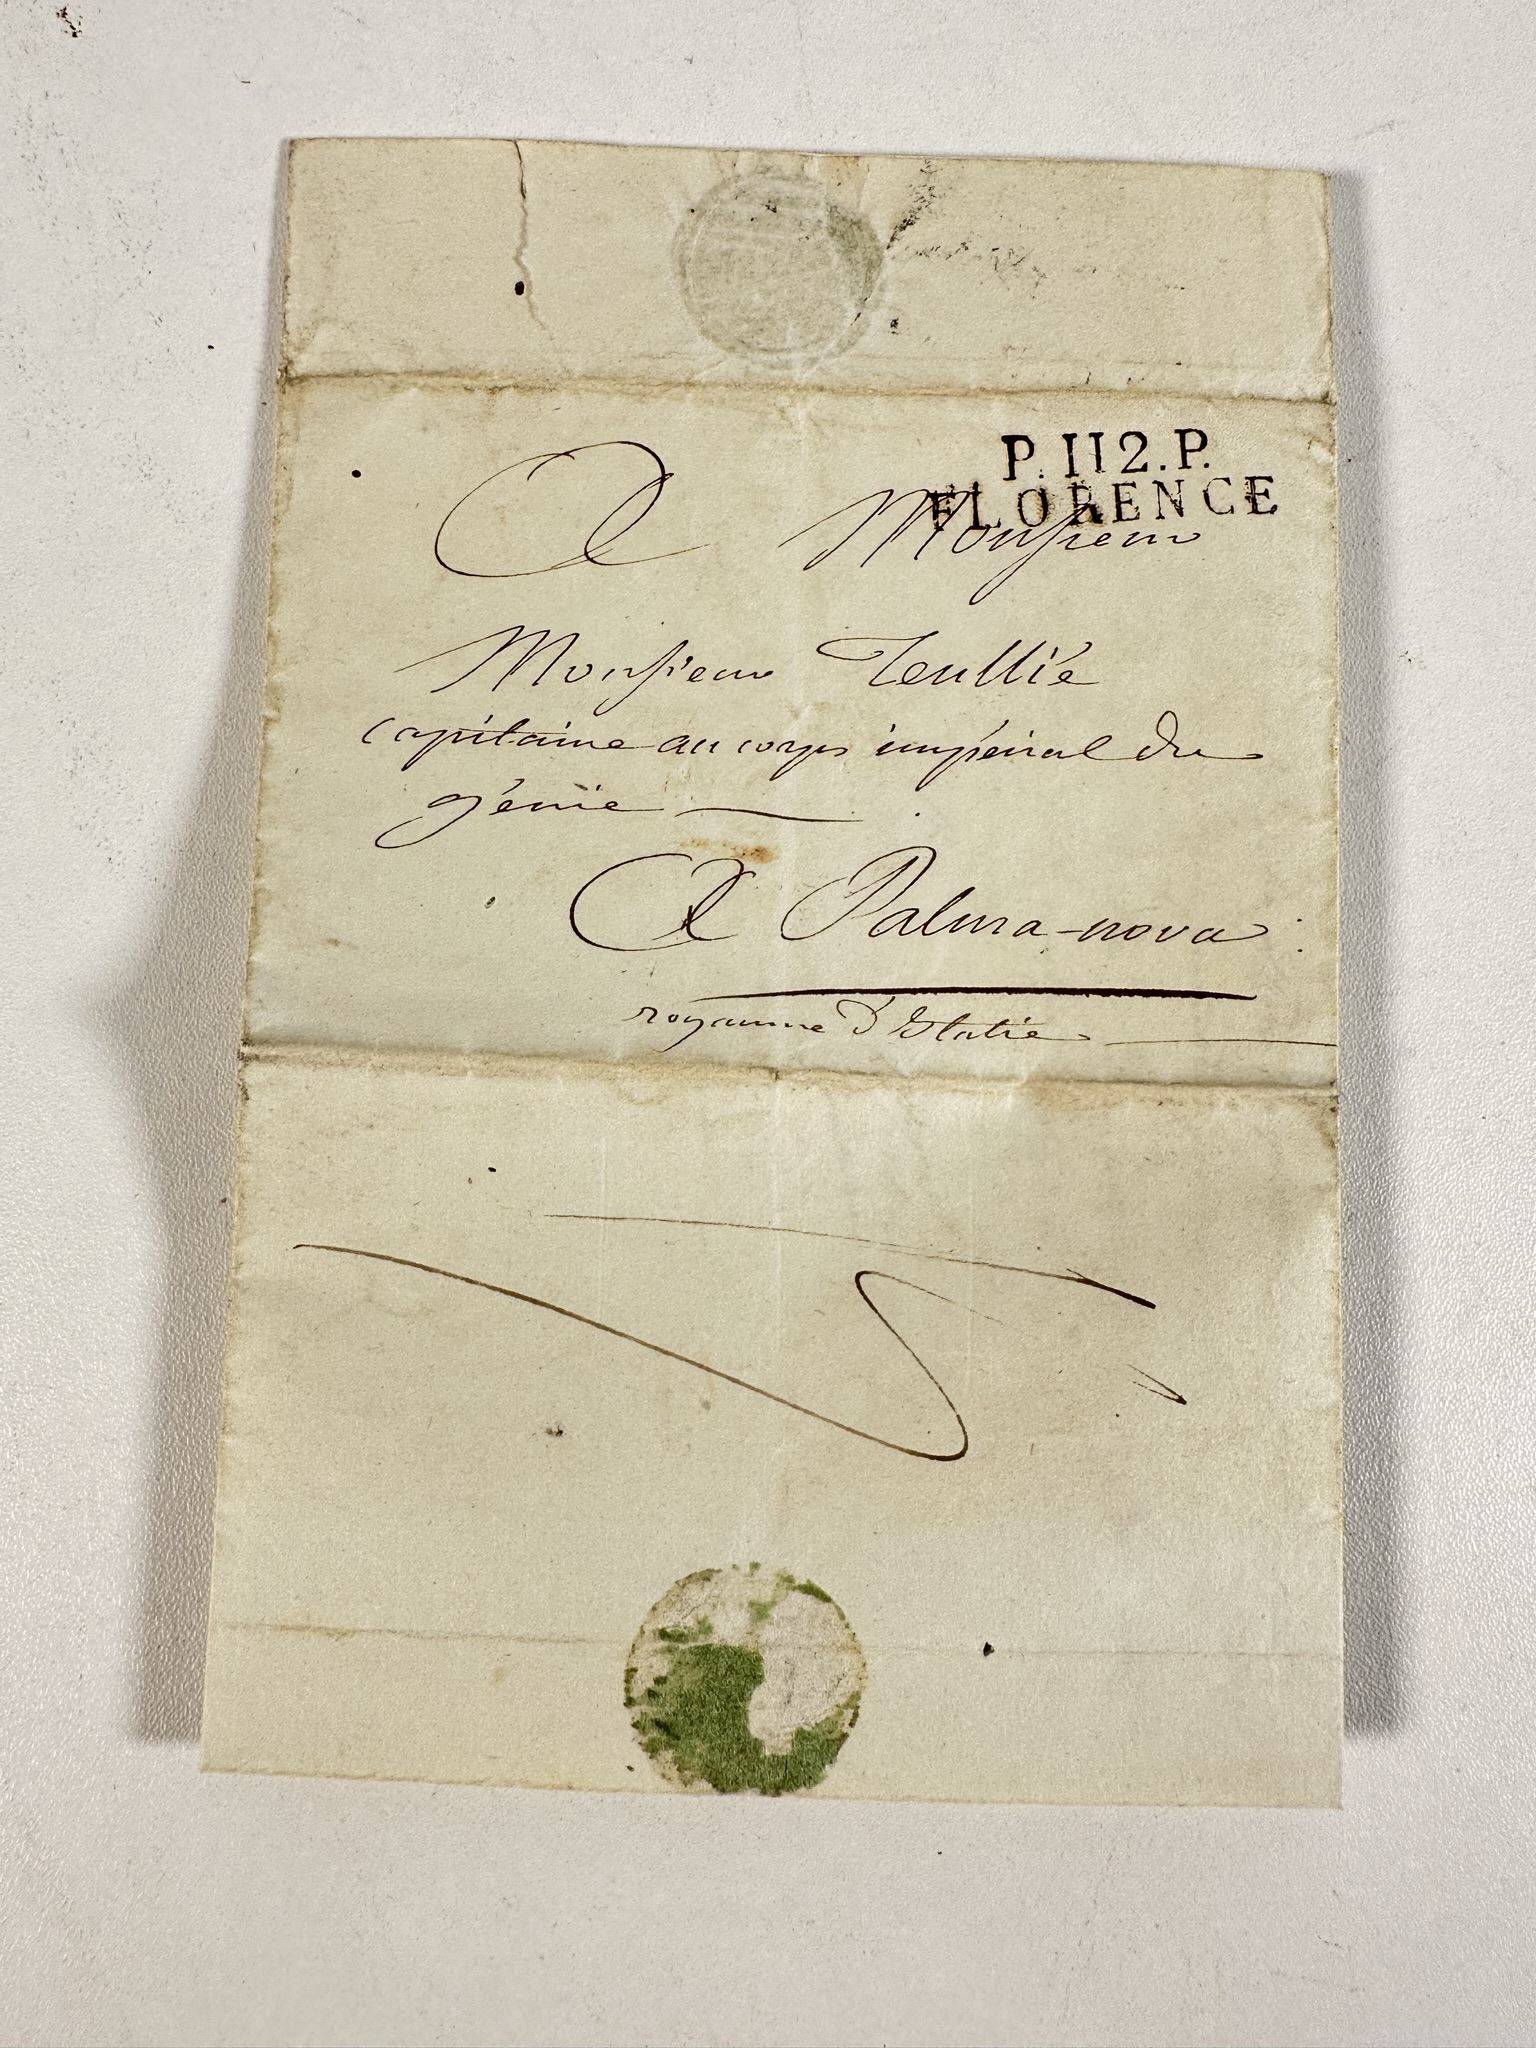 P.112.P.
FLORENCE
A Monsieur
Monsieur Teullié
capitaine au corps impérial du
génie
A Palma-nova
royaume d'Italie